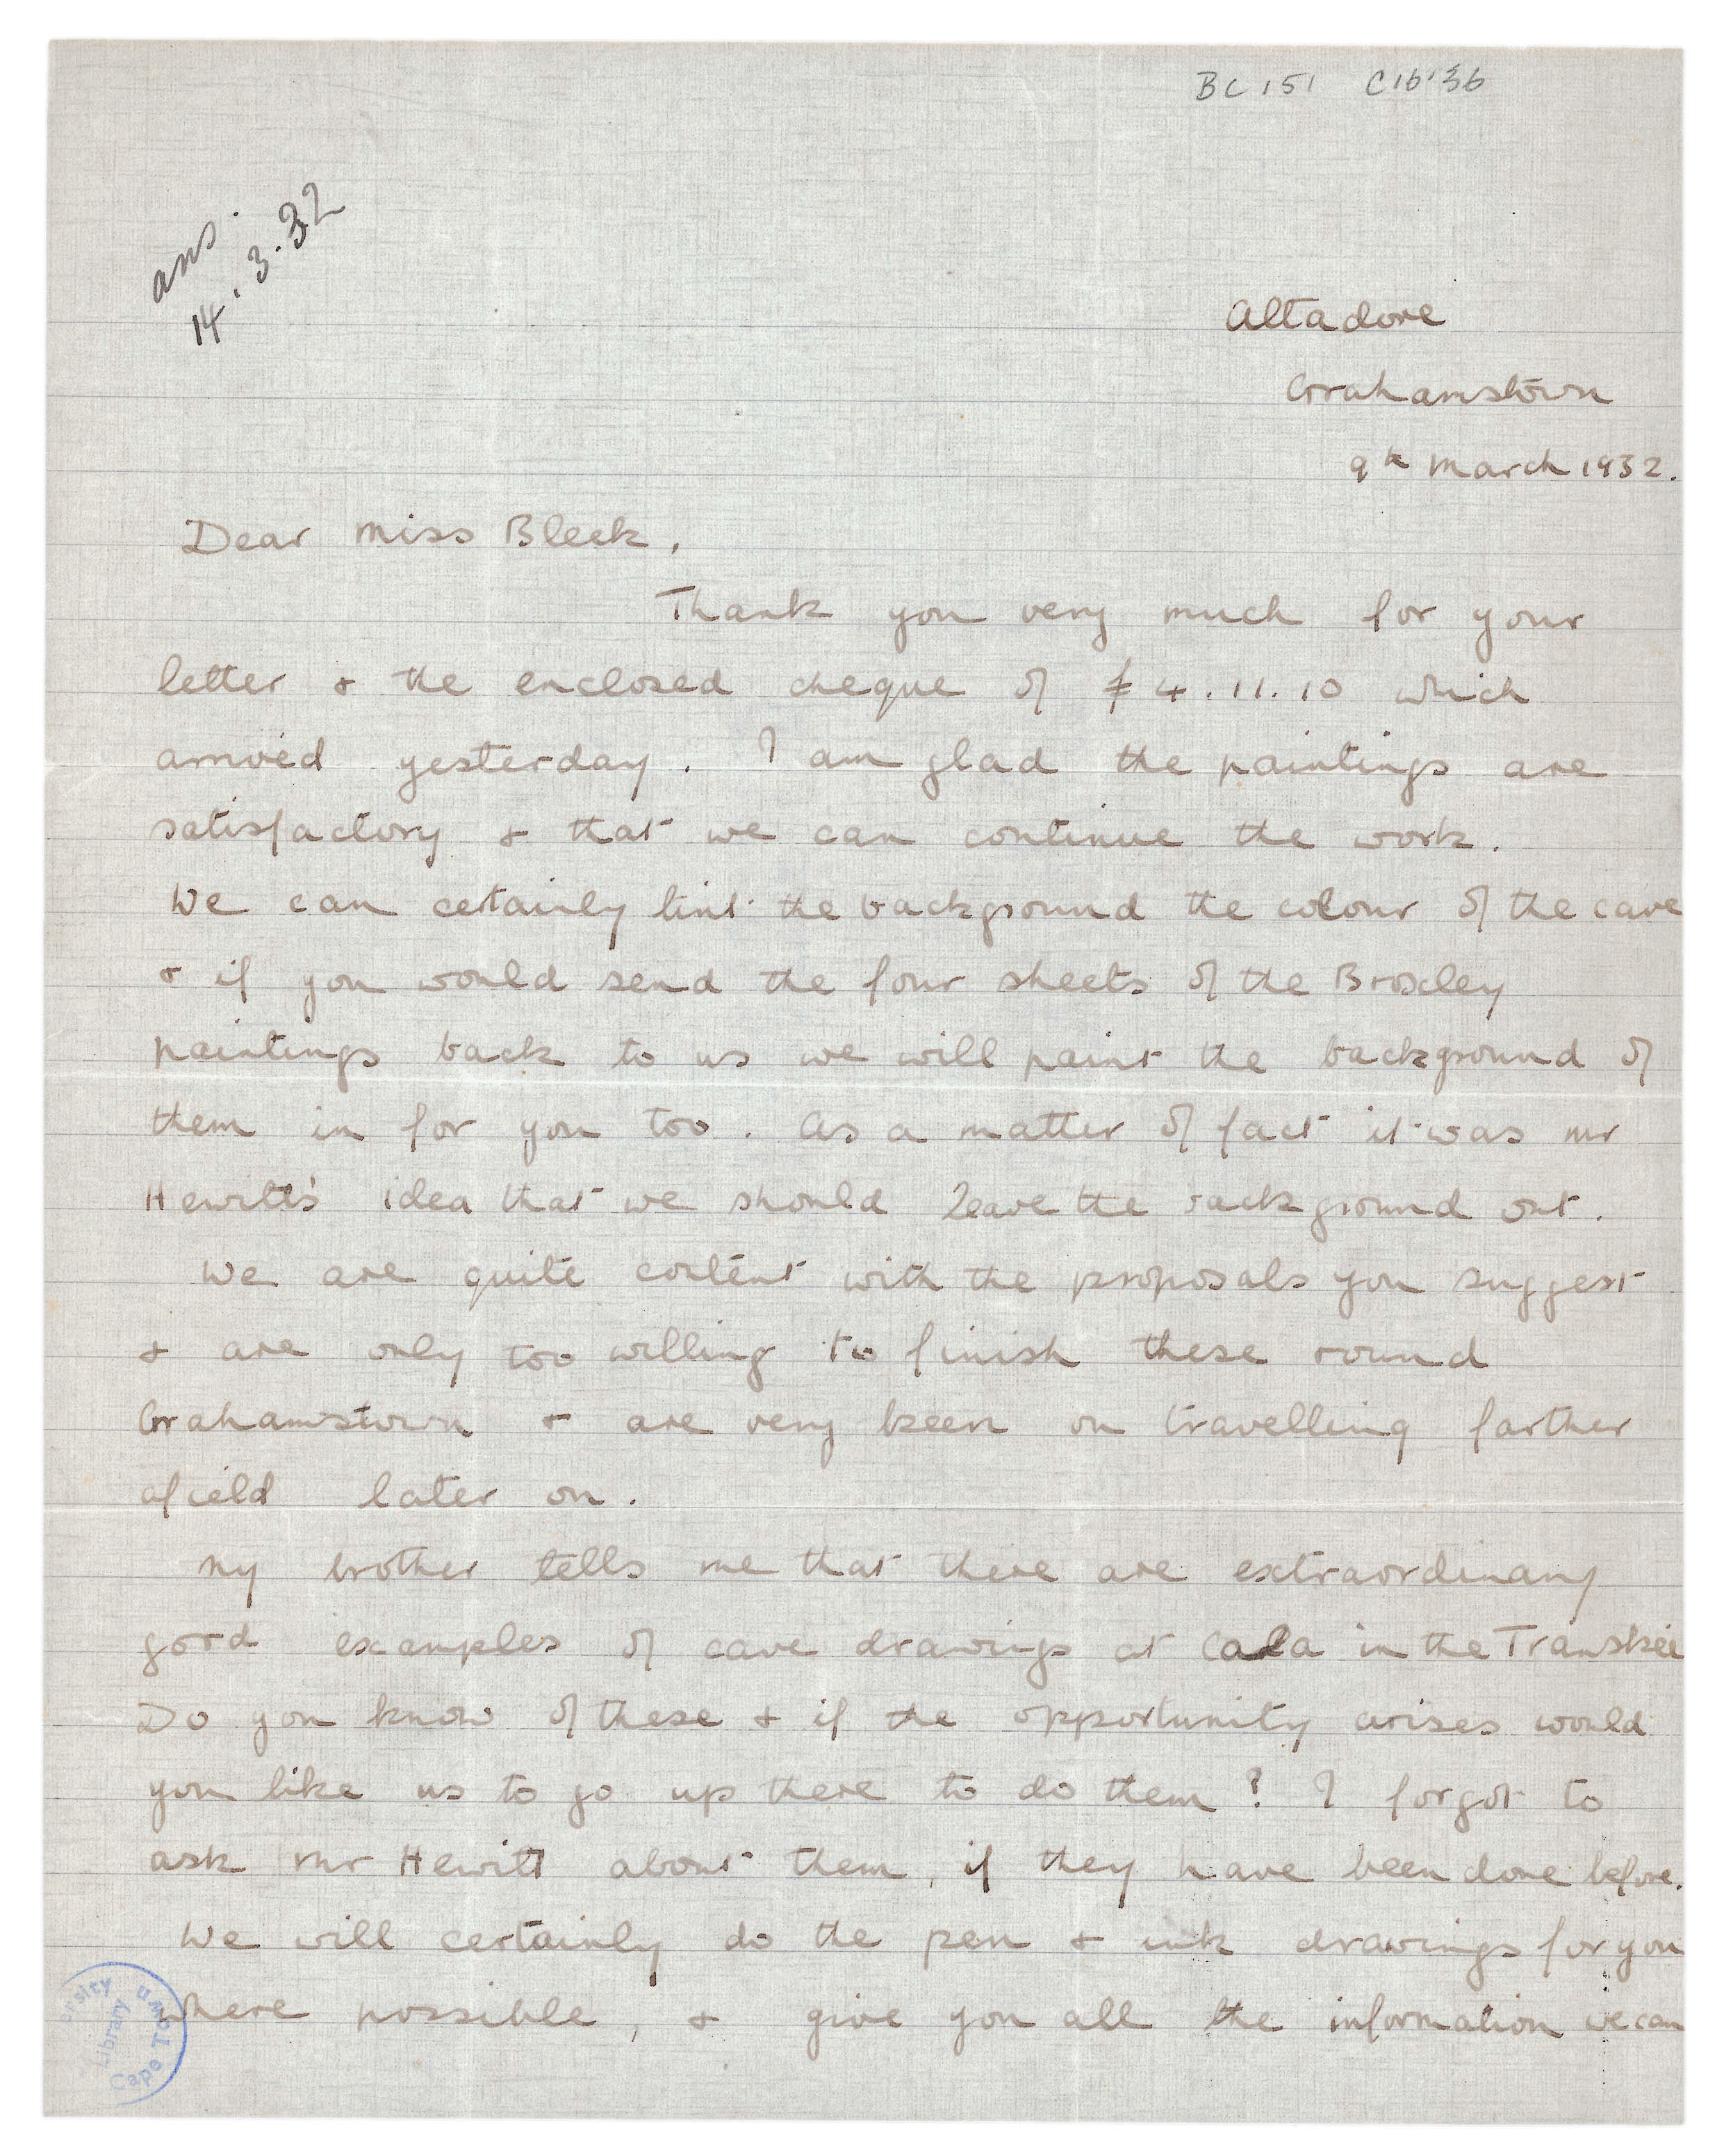 BC 151 C16.36
ans.
14.3.32
Altadore
Grahamstown
9th March 1932.
Dear Miss Bleek,
Thank you very much for your
letter & the enclosed cheque of £4.11.10 which
arrived yesterday. I am glad the paintings are
satisfactory & that we can continue the work.
We can certainly tint the background the colour of the cave
& if you would send the four sheets of the Broxley
paintings back to us we will paint the background of
them in for you too. As a matter of fact it was Mr
Hewitt's idea that we should leave the background out.
We are quite content with the proposals you suggest
& are only too willing to finish these round
Grahamstown & are very keen on travelling farther
afield later on.
My brother tells me that there are extraordinary
good examples of cave drawings at Cala in the Transkei
Do you know of these & if the opportunity arises would
you like us to go up there to do them? I forgot to
ask Mr Hewitt about them, if they have been done before.
We will certainly do the pen & ink drawings for you
where possible, & give you all the information we can
University Library Cape Town